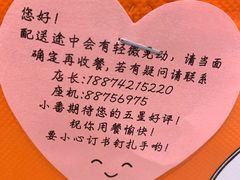 您好！
配送途中会有轻微晃动，请当面
确定再收餐，若有疑问请联系
店长：18874215220
座机：88756975
小番期待您的五星好评！
祝你用餐愉快！
要小心订书钉扎手哟！